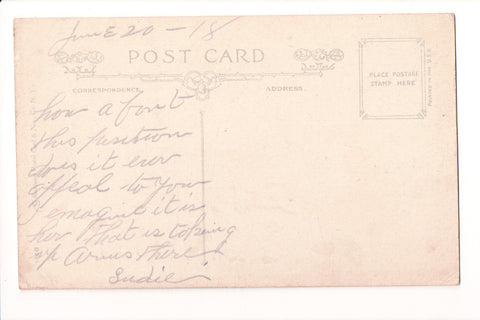 June 20 - 18
POST CARD
CORRESPONDENCE.
ADDRESS.
PLACE POSTAGE
STAMP HERE
how a bout
this position
does it ever
appeal to you
I emagine it is
her that is taking
up Arms there!
Sudie